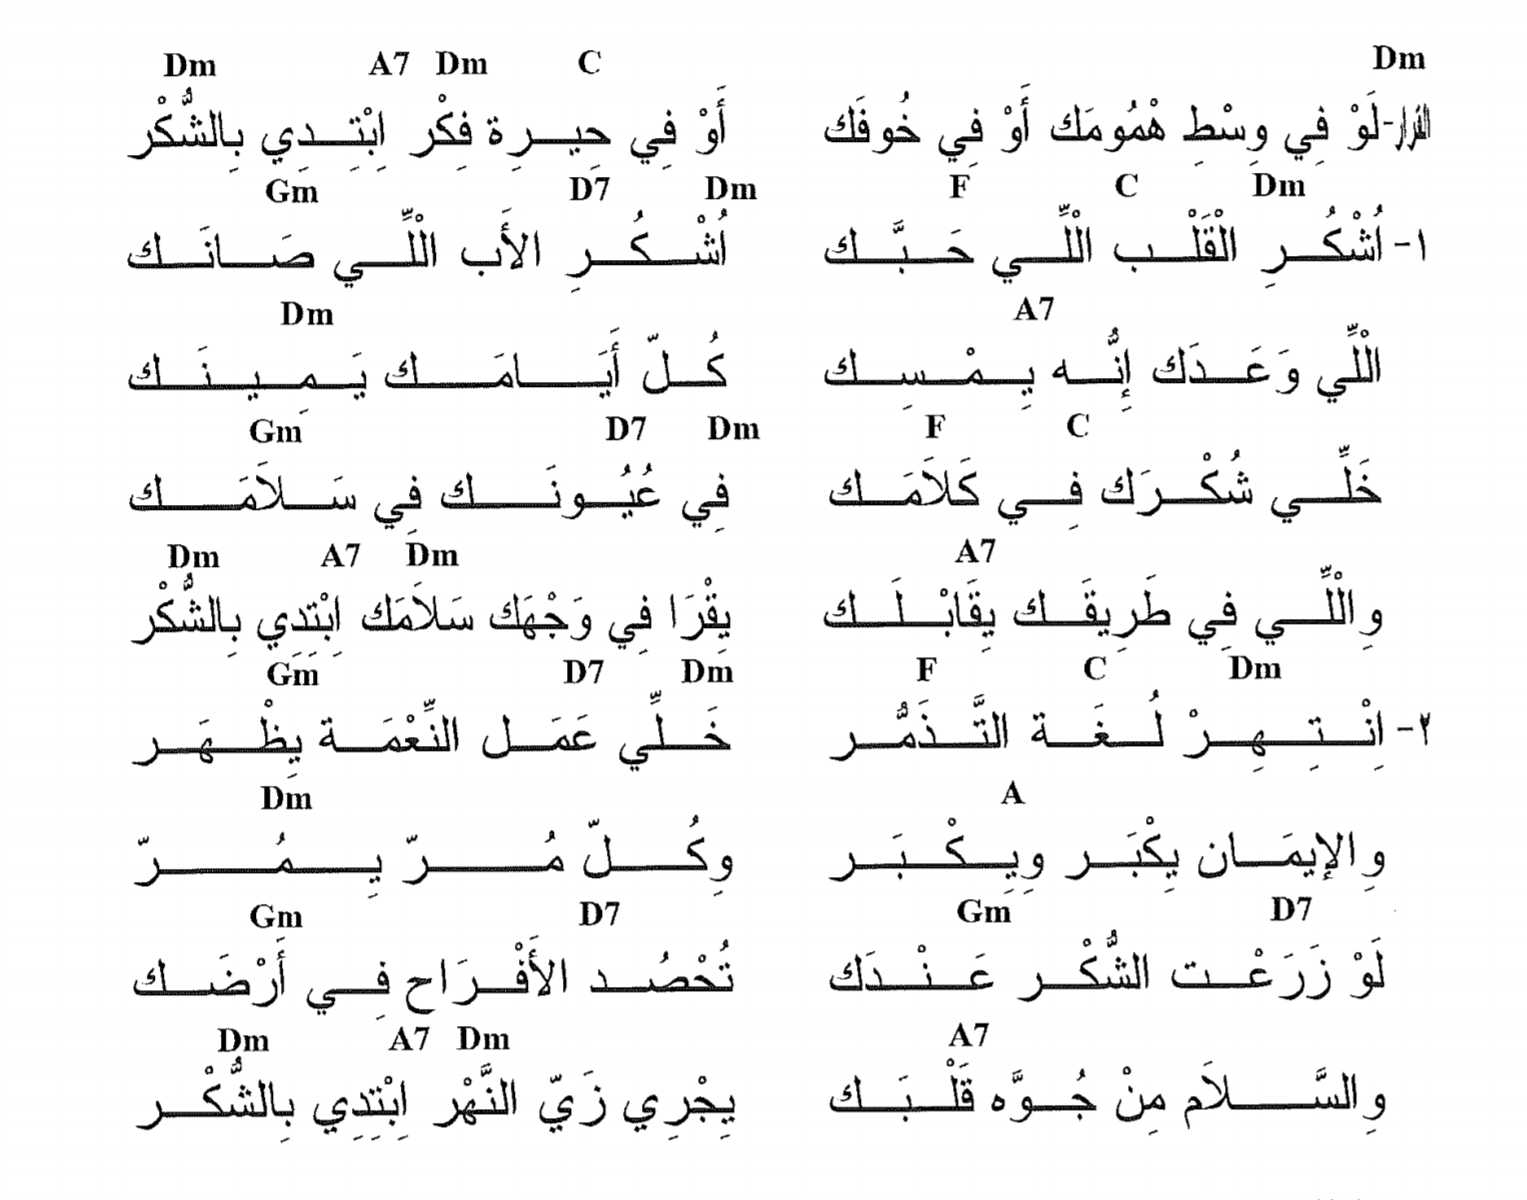 Dm C Dm A7 Dm
القرار- لَوْ فِي وِسْطِ هْمُومَك أَوْ فِي خُوفَك أَوْ فِي حِيـرِة فِكْر اِبْتِـدِي بِالشُّكْر
Dm C F Dm D7 Gm
١- اُشْكُـرِ الْقَلْـب اللِّْـي حَـبَّـك اُشْـكُـرِ الأَب اللِّْـي صَـانَـك
A7 Dm
اللِّْي وَعَـدَك إِنُّـه يِـمْـسِـك كُـلّ أَيَـامَـك يَـمِـيـنَـك
C F Dm D7 Gm
خَلِّـي شُكْـرَك فِـي كَلاَمَـك فِي عُيُـونَـك فِي سَـلاَمَـك
A7 Dm A7 Dm
وِاللِّْـي فِي طَرِيقَـك يِقَابْـلَـك يِقْرَا فِي وَجْهَك سَلاَمَك اِبْتِدِي بِالشُّكْر
Dm C F Dm D7 Gm
٢- اِنْـتِـهِـرْ لُـغَـة التَّـذَمُّـر خَـلِّي عَمَـل النِّعْمَـة يِظْـهَـر
A Dm
وِالإِيمَـان يِكْبَـر وِيِـكْـبَـر وِكُـلّ مُـرّ يِـمُـرّ
D7 Gm D7 Gm
لَوْ زَرَعْـت الشُّكْـر عَـنْـدَك تُحْصُـد الأَفْـرَاح فِـي أَرْضَـك
A7 Dm A7 Dm
وِالسَّـلاَم مِنْ جُـوَّه قَلْـبَـك يِجْرِي زَيّ النَّهْر اِبْتِدِي بِالشُّكْـر